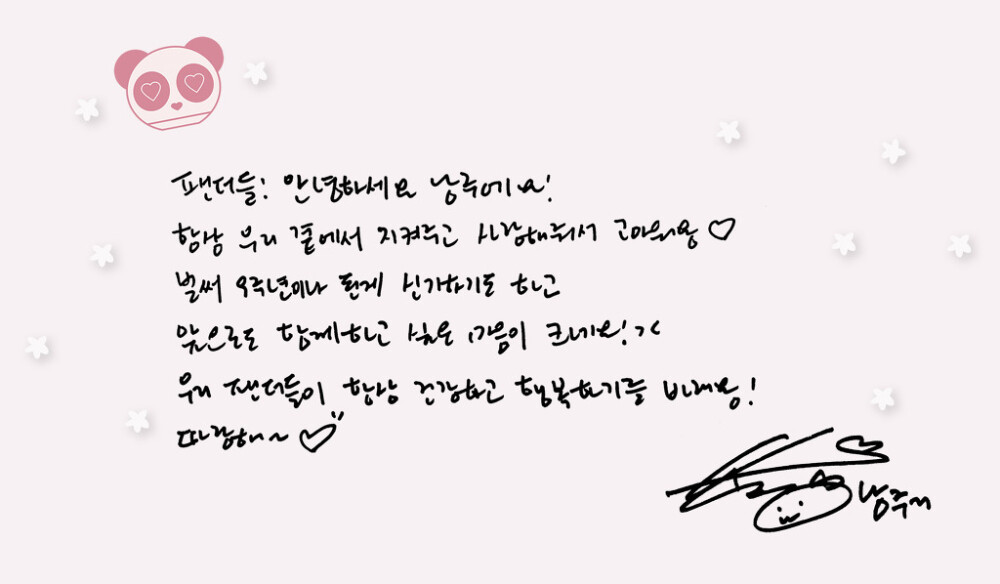 팬더들! 안녕하세요 남주에요!
항상 우리 곁에서 지켜주고 사랑해줘서 고마워용♡
벌써 9주년이나 된게 신기하기도 하고
앞으로도 함께하고 싶은 마음이 크네요!ㅈ
우리 팬더들이 항상 건강하고 행복하기를 바래용!
따랑해~♡
남주